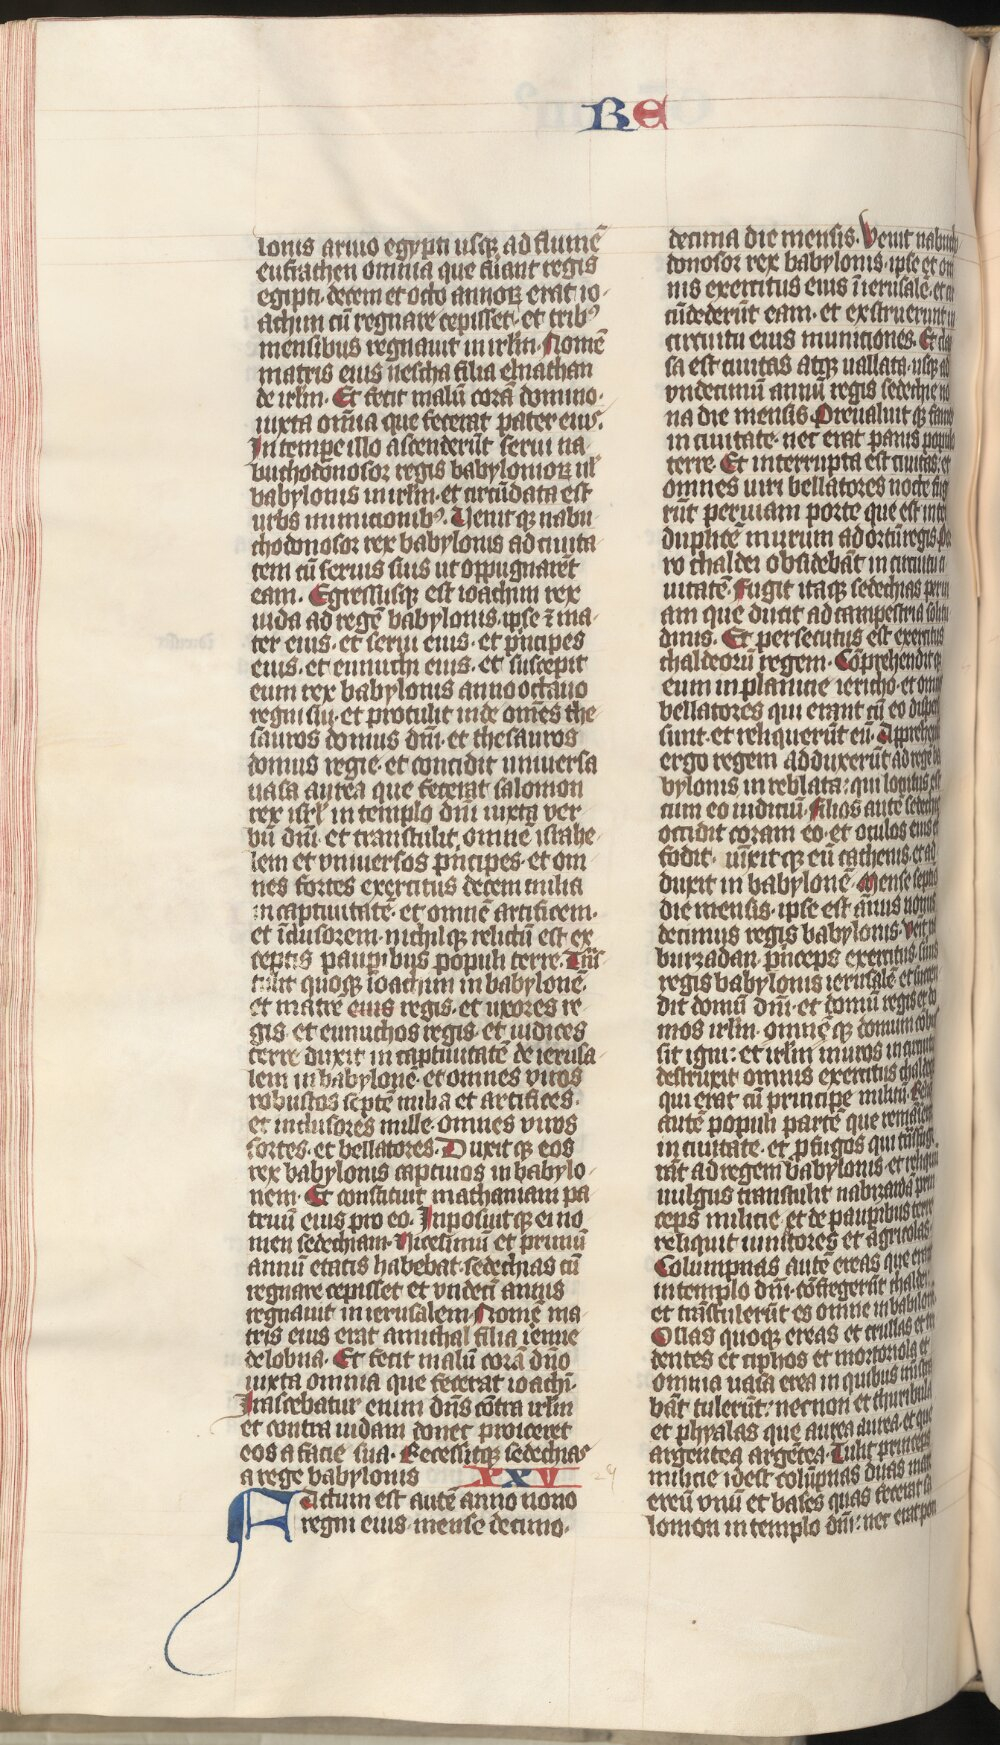 RE
lonis a riuo egypti usq; ad flumē
eufrathen omnia que fūant regis
egipti· decem et octo annoꝝ erat io-
achim cū regnare cepisset· et tribꝰ
mensibus regnauit in irlm· Nomē
matris eius nescha filia elnathan
de irlm· Et fecit malū corā domino·
iuxta om̄ia que fecerat pater eius·
In tempe illo ascenderūt serui na-
buchodonosor regis babylonioꝝ ul̓
babylonis in irlm· et circūdata est
urbs municionibꝰ· Venit q; nabu-
chodonosor rex babylonis ad ciuita-
tem cū seruis suis ut oppugnarēt
eam· Egressusq; est ioachim rex
iuda ad regē babylonis· ipse ꝛ ma-
ter eius· et serui eius· et pncipes
eius· et eunuchi eius· et suscepit
eum rex babylonis anno octauo
regni sui· et protulit inde om̄es the-
sauros domus dn̄i· et thesauros
domus regie· et concidit uniuersa
uasa aurea que fecerat salomon
rex isrl̓ in templo dn̄i iuxta ver-
bū dn̄i· et transtulit omnē israhe-
lem et vniuersos pncipes· et om-
nes fortes exercitus decem milia
in captiuitatē· et omnē artificem·
et īclusorem· nichilq; relictū est ex-
ceptis paupibus populi terre· Trās
tulit quoq; ioachim in babylonē·
et matrē eius regis· et uxores re-
gis· et eunuchos regis· et iudices
terre duxit in captiuitatē de ierusa-
lem in babylonē· et omnes viros
robustos septē milia et artifices·
et inclusores mille· omnes viros
fortes· et bellatores· Duxit q; eos
rex babylonis captiuos in babylo-
nem· Et constituit mathaniam pa-
truū eius pro eo· Inposuit q; ei no-
men sedechiam· Vicesimū et primū
annū etatis habebat· sedechias cū
regnare cepisset et vndecī annis
regnauit in ierusalem· Nomē ma-
tris eius erat amithal filia iemie
de lobna· Et fecit malū corā dn̄o
iuxta omnia que fecerat ioachī·
Irascebatur enim dn̄s cōtra irlm
et contra iudam donec proiceret
eos a facie sua· Recessitq; sedechias
a rege babylonis XXV
Factum est autē anno nono
regni eius· mense decimo·
decima die mensis· Venit nabuch
donosor rex babylonis· ipse et om
nis exercitus eius ī ierusalē· et cir
cūdederūt eam· et exstruerunt in
circuitu eius municiones· Et clau
sa est ciuitas atq; uallata· usq; ad
vndecimū annū regis sedechie no
na die mensis· Preualuit q; fames
in ciuitate· nec erat panis populo
terre· Et interrupta est ciuitas· et
omnes uiri bellatores nocte fuge
rūt per uiam porte que est inter
duplicē murum ad ortū regis· Po
ro chaldei obsidebāt in circuitu ci
uitatē· Fugit itaq; sedechias per ui
am que ducit ad campestria solitu
dinis· Et persecutus est exercitus
chaldeorū regem· Cōprehendit q;
eum in planicie iericho· et omnes
bellatores qui erant cū eo dispersi
sunt· et reliquerūt eū· Apprehensū
ergo regem adduxerūt ad regē ba
bylonis in reblata: qui locutus est
cum eo iudiciū· Filios autē sedechie
occidit coram eo· et oculos eius ef
fodit· uīxit q; eū cathenis· et ad
duxit in babylonē· Mense septīo
die mensis· ipse est ānus nonus
decimus regis babylonis· Venit na
burzadan pnceps exercitus seruus
regis babylonis ierusalē et succen
dit domū dn̄i· et domū regis et do
mos irlm· omnē q; domum cōbus
sit igni: et irlm muros in circuitu
destruxit omnis exercitus chaldeoꝝ
qui erat cū principe militū· Reliq
autē populi partē que remāserat
in ciuitate· et pfugos qui trāsfuge
rāt ad regem babylonis· et reliquū
uulgus transtulit nabuzardā prin
ceps milicie et de paupibus terre
reliquit uinitores et agricolas·
Columpnas autē ereas que erant
in templo dn̄i· cōfregerūt chaldei·
et trāstulerūt es omne in babilonē·
Ollas quoq; ereas et trullas et tri
dentes et ciphos et mortoriola et
omnia uasa erea in quibus mīstra
bāt tulerūt: necnon et thuribula
et phyalas que aurea aurea· et que
argentea argētea· Tulit princeps
milicie idest colūpnas duas mare
ereū vnū et bases quas fecerat sa
lomon in templo dn̄i: nec erat pon